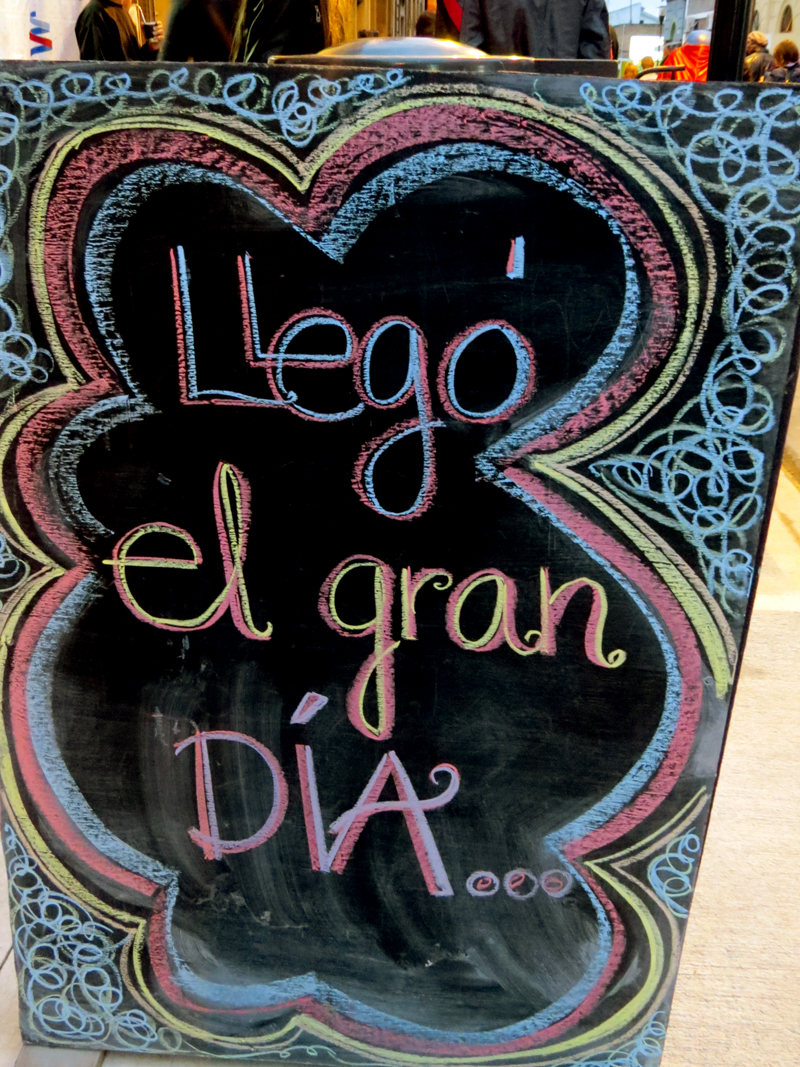 LLegó
el gran
DÍA...